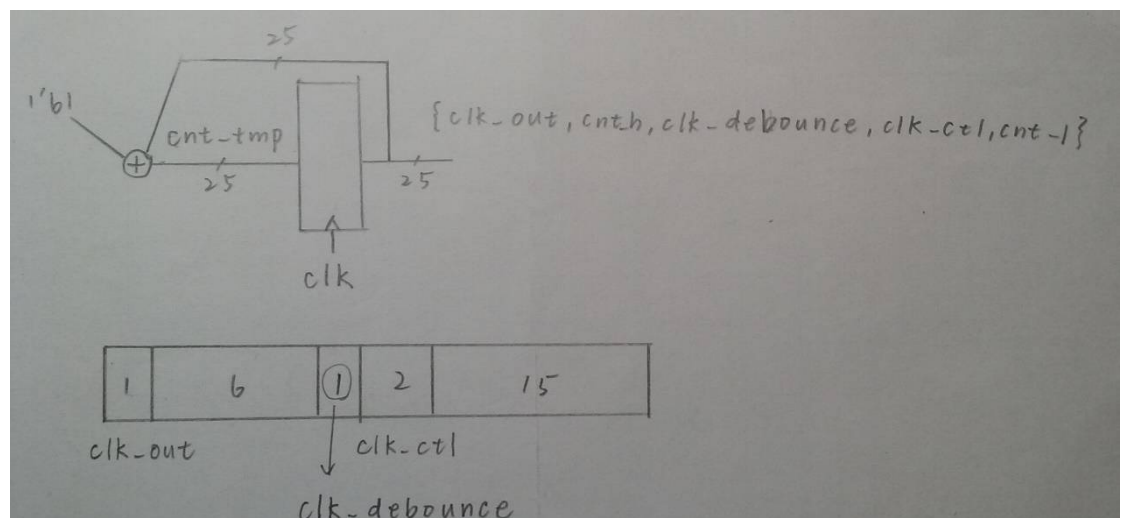 25
1'b1
cnt_tmp
{clk_out, cnt_h, clk_debounce, clk_ctl, cnt_l}
25
25
clk
1 6 1 2 15
clk_out clk_ctl
clk_debounce